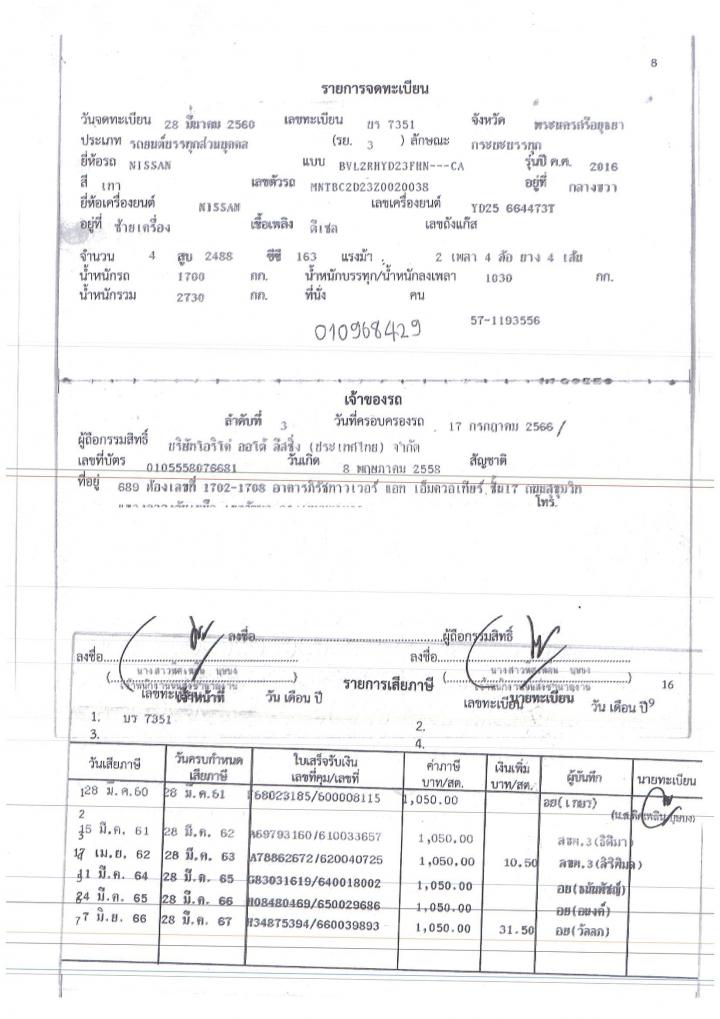 8
รายการจดทะเบียน
วันจดทะเบียน 28 มีนาคม 2560 เลขทะเบียน บร 7351 จังหวัด พระนครศรีอยุธยา
ประเภท รถยนต์บรรทุกส่วนบุคคล (รย. 3 ) ลักษณะ กระบะบรรทุก
ยี่ห้อรถ NISSAN แบบ BVL2RHYD23FHN---CA รุ่นปี ค.ศ. 2016
สี เทา เลขตัวรถ MNTBC2D23Z0020038 อยู่ที่ กลางขวา
ยี่ห้อเครื่องยนต์ NISSAN เลขเครื่องยนต์ YD25 664473T
อยู่ที่ ซ้ายเครื่อง เชื้อเพลิง ดีเซล เลขถังแก๊ส
จำนวน 4 สูบ 2488 ซีซี 163 แรงม้า 2 เพลา 4 ล้อ ยาง 4 เส้น
น้ำหนักรถ 1700 กก. น้ำหนักบรรทุก/น้ำหนักลงเพลา 1030 กก.
น้ำหนักรวม 2730 กก. ที่นั่ง คน
57-1193556
010968429
เจ้าของรถ
ลำดับที่ 3 วันที่ครอบครองรถ 17 กรกฎาคม 2566 /
ผู้ถือกรรมสิทธิ์ บริษัทโอริโค่ ออโต้ ลีสซิ่ง (ประเทศไทย) จำกัด
เลขที่บัตร 0105558076681 วันเกิด 8 พฤษภาคม 2558 สัญชาติ
ที่อยู่ 689 ห้องเลขที่ 1702-1708 อาคารภิรัชทาวเวอร์ แอท เอ็มควอเทียร์ ชั้น17 ถนนสุขุมวิท
โทร.
ลงชื่อ ผู้ถือกรรมสิทธิ์
ลงชื่อ ลงชื่อ
นางสาว นางสาว
รายการเสียภาษี 16
เลขทะเบียน เจ้าหน้าที่ วัน เดือน ปี เลขทะเบียน นายทะเบียน วัน เดือน ปี 9
1. บร 7351 2.
3. 4.
วันเสียภาษี วันครบกำหนดเสียภาษี ใบเสร็จรับเงิน เลขที่คุม/เลขที่ ค่าภาษี บาท/สต. เงินเพิ่ม บาท/สต. ผู้บันทึก นายทะเบียน
1 28 มี.ค.60 28 มี.ค.61 68023185/600008115 1,050.00 อย(เกษา)
2
15 มี.ค. 61 28 มี.ค. 62 A69793160/610033657 1,050.00 สขต.3(ธิติมา)
3
17 เม.ย. 62 28 มี.ค. 63 A78862672/620040725 1,050.00 10.50 สขต.3(สิริพิมล)
11 มี.ค. 64 28 มี.ค. 65 G83031619/640018002 1,050.00
24 มี.ค. 65 28 มี.ค. 66 H08480469/650029686 1,050.00 อย(อนงค์)
7 7 มิ.ย. 66 28 มี.ค. 67 H34875394/660039893 1,050.00 31.50 อย(วัลลภ)